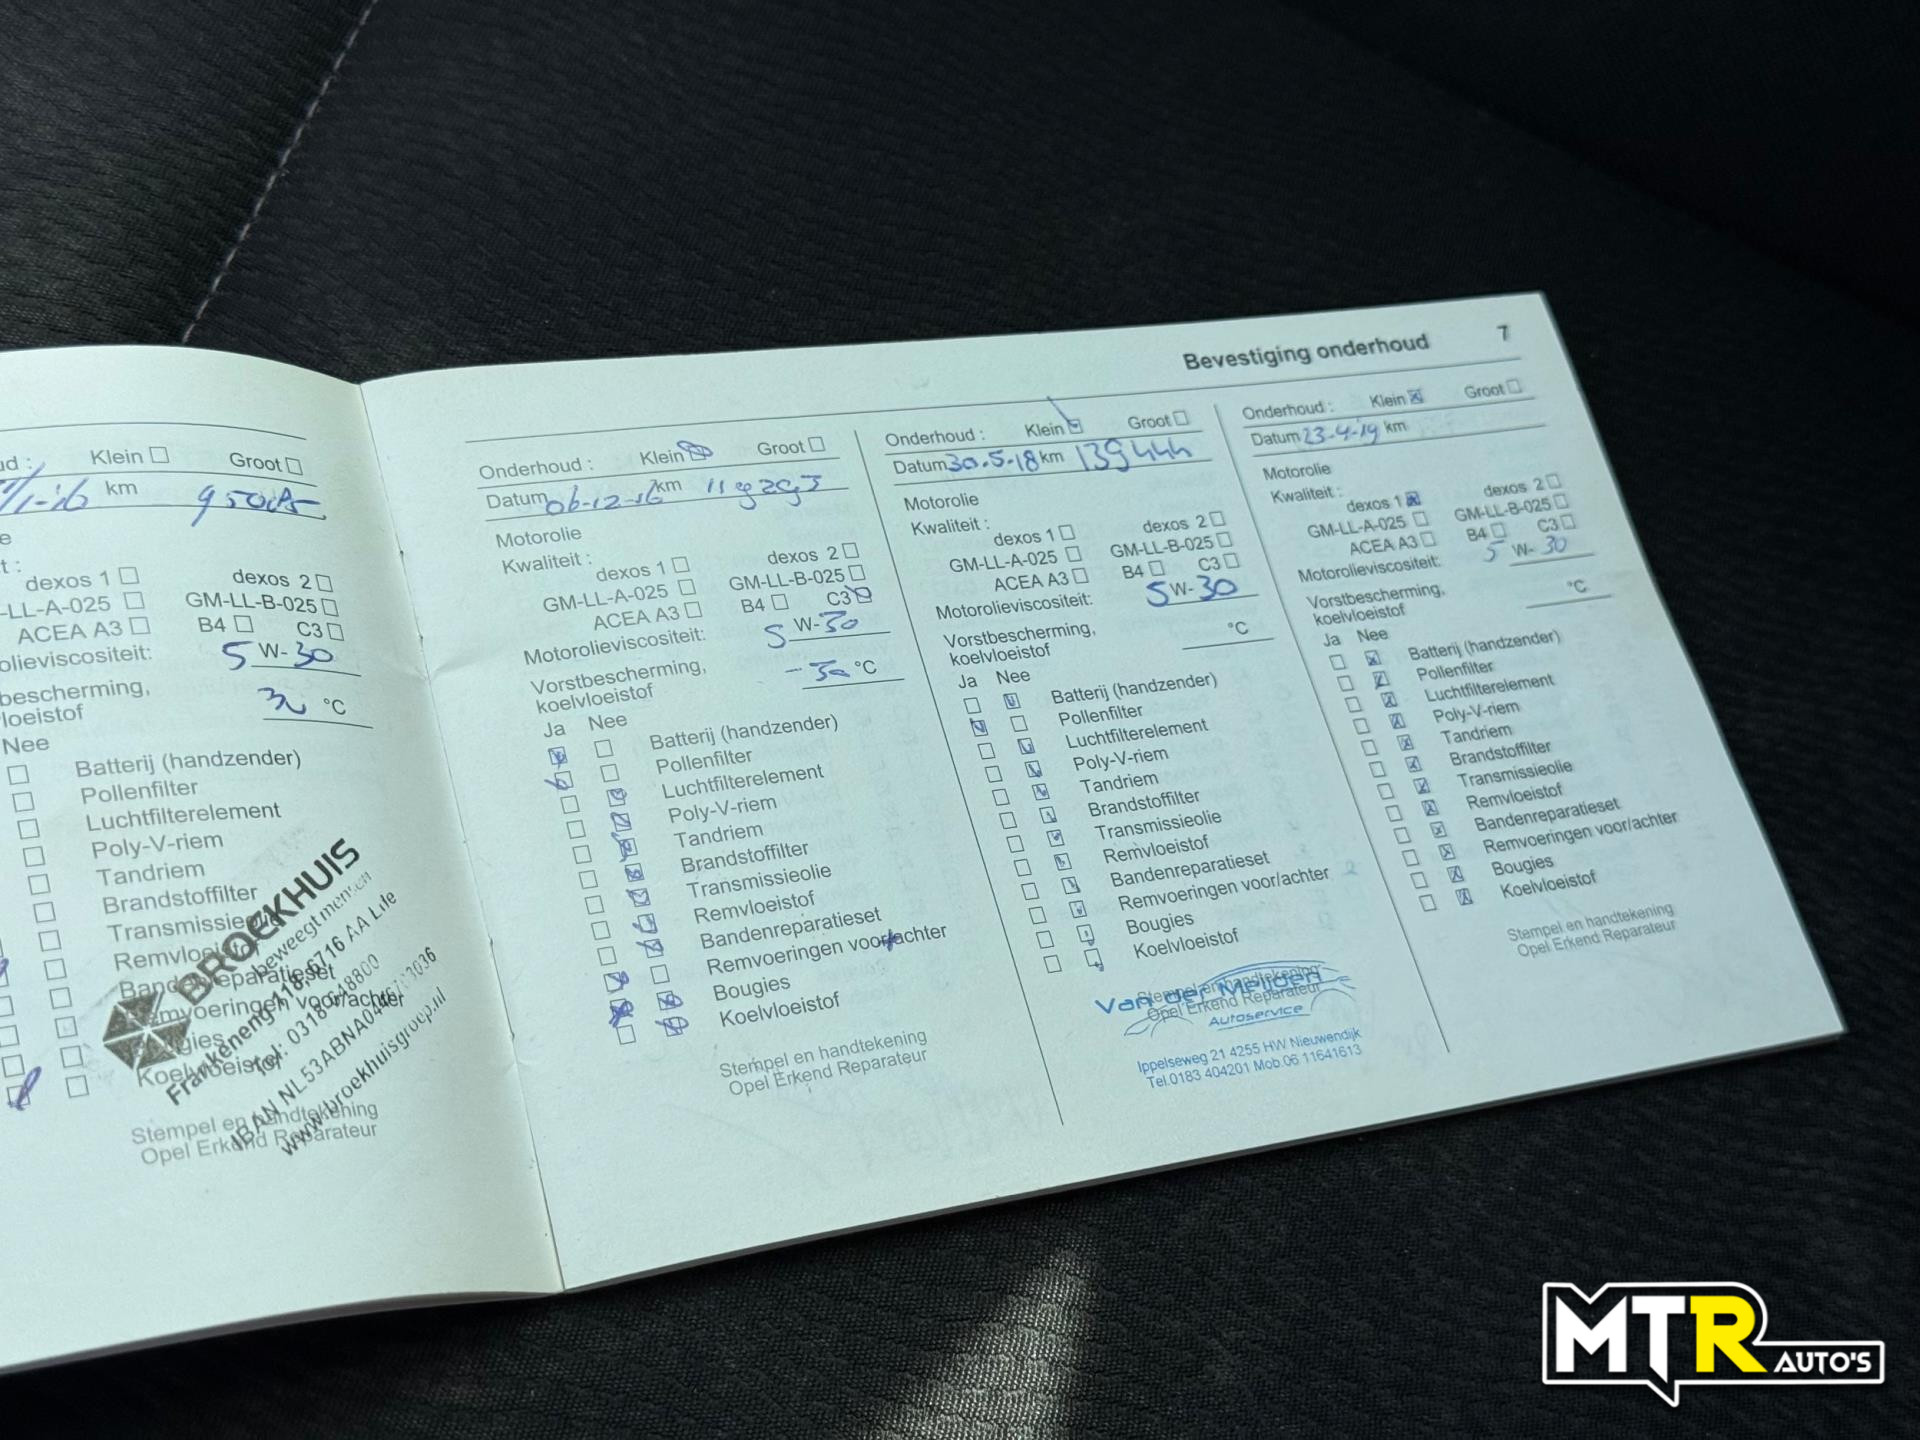 Bevestiging onderhoud 7
Klein Groot
km
dexos 1 dexos 2
GM-LL-B-025
ACEA A3 B4 C3
5 W- 30
°C
Nee
Batterij (handzender)
Pollenfilter
Luchtfilterelement
Poly-V-riem
Tandriem
Brandstoffilter
Transmissieolie
Remvloeistof
Bandenreparatieset
Remvoeringen voor/achter
Bougies
Koelvloeistof
BROEKHUIS
beweegt mensen
Frankeneng 118, 6716 AA
www.broekhuisgroep.nl
Stempel en handtekening
Opel Erkend Reparateur
Onderhoud : Klein Groot
Datum 06-12-16 km
Motorolie
Kwaliteit :
dexos 1 dexos 2
GM-LL-A-025 GM-LL-B-025
ACEA A3 B4 C3
Motorolieviscositeit: 5 W- 30
Vorstbescherming,
koelvloeistof -30 °C
Ja Nee
Batterij (handzender)
Pollenfilter
Luchtfilterelement
Poly-V-riem
Tandriem
Brandstoffilter
Transmissieolie
Remvloeistof
Bandenreparatieset
Remvoeringen voor/achter
Bougies
Koelvloeistof
Stempel en handtekening
Opel Erkend Reparateur
Onderhoud : Klein Groot
Datum 30.5.18 km 139444
Motorolie
Kwaliteit :
dexos 1 dexos 2
GM-LL-A-025 GM-LL-B-025
ACEA A3 B4 C3
Motorolieviscositeit: 5 W- 30
Vorstbescherming,
koelvloeistof °C
Ja Nee
Batterij (handzender)
Pollenfilter
Luchtfilterelement
Poly-V-riem
Tandriem
Brandstoffilter
Transmissieolie
Remvloeistof
Bandenreparatieset
Remvoeringen voor/achter
Bougies
Koelvloeistof
Stempel en handtekening
Opel Erkend Reparateur
Van der Meijden
Autoservice
Ippelseweg 21 4255 HW Nieuwendijk
Tel.0183 404201 Mob.06 11641613
Onderhoud : Klein Groot
Datum 23-4-19 km
Motorolie
Kwaliteit :
dexos 1 dexos 2
GM-LL-A-025 GM-LL-B-025
ACEA A3 B4 C3
Motorolieviscositeit: 5 W- 30
Vorstbescherming,
koelvloeistof °C
Ja Nee
Batterij (handzender)
Pollenfilter
Luchtfilterelement
Poly-V-riem
Tandriem
Brandstoffilter
Transmissieolie
Remvloeistof
Bandenreparatieset
Remvoeringen voor/achter
Bougies
Koelvloeistof
Stempel en handtekening
Opel Erkend Reparateur
MTR AUTO'S